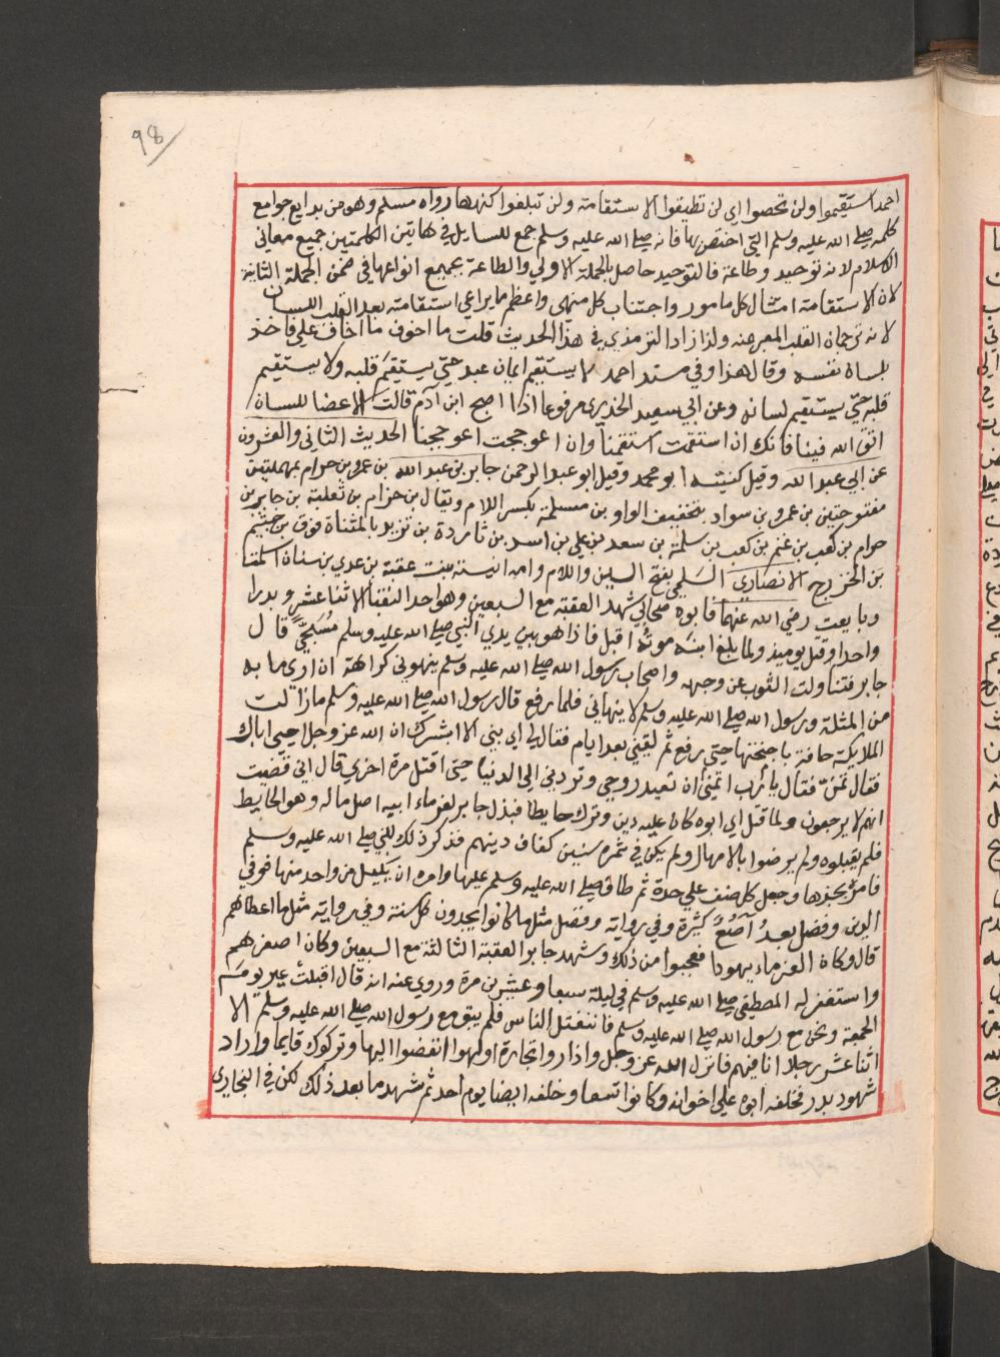 ٩٨
احمد استقيموا ولن تحصوا اي لن تطيقوا الاستقامة ولن تبلغوا كنهها رواه مسلم وهو من بدايع جوامع
كلمه صلي الله عليه وسلم التي اختص بها فانه صلي الله عليه وسلم جمع للسايل في هاتين الكلمتين جميع معاني
الاسلام لانه توحيد وطاعة فالتوحيد حاصل بالجملة الاولي والطاعة بجميع انواعها في ضمن الجملة الثانية
لان الاستقامة امتثال كل مامور واجتناب كل منهي واعظم ما يراعي استقامته بعد القلب اللسان
لانه ترجمان القلب المعبر عنه ولذا زاد الترمذي في هذا الحديث قلت ما اخوف ما اخاف علي فاخذ
بلسان نفسه وقال هذا وفي مسند احمد لا يستقيم ايمان عبد حتي يستقيم قلبه ولا يستقيم
قلبه حتي يستقيم لسانه وعن ابي سعيد الخدري مرفوعا اذا اصبح ابن آدم قالت الاعضا للسان
اتق الله فينا فانك ان استقمت استقمنا وان اعوججت اعوججنا الحديث الثاني والعشرون
عن ابي عبد الله وقيل كنيته ابو محمد وقيل ابو عبد الرحمن جابر بن عبد الله بن عمرو بن حرام بمهملتين
مفتوحتين بن عمرو بن سواد بتخفيف الواو بن مسلمة بكسر اللام ويقال بن حزام بن ثعلبة بن حرام بن
حرام بن كعب بن غنم بن كعب بن سلمة بن سعد بن علي بن اسد بن ثاردة بن تزيد بالمثناة فوق بن جشم
بن الخزرج الانصاري السلمي بفتح السين واللام وامه انيسة بنت عقبة بن عدي بن سنان اسلمتا
وبايعت رضي الله عنهما فابوه صحابي شهد العقبة مع السبعين وهو احد النقبا الاثنا عشر وبدرا
واحدا وقتل يوميذ ولما بلغ ابنه موته اقبل فاذا هو بين يدي النبي صلي الله عليه وسلم مسجي قال
جابر فتناولت الثوب عن وجهه واصحاب رسول الله صلي الله عليه وسلم ينهوني كراهة ان اري ما به
من المثلة ورسول الله صلي الله عليه وسلم لا ينهاني فلما رفع قال رسول الله صلي الله عليه وسلم مازالت
الملايكة حافة باجنحتها حتي رفع ثم لقيني بعد ايام فقال لي اي بني الا ابشرك ان الله عز وجل احيي اباك
فقال تمن فقال يا رب اتمني ان تعيد روحي وتردني الي الدنيا حتي اقتل مرة اخري قال اني قضيت
انهم لا يرجعون ولما قتل اي ابوه كان عليه دين وترك حايطا فبذل جابر لغرماء ابيه اصل ماله وهو الحايط
فلم يقبلوه ولم يرضوا بالامهال ولم يكن في ثمره سنين كفاف دينهم فذكر ذلك للنبي صلي الله عليه وسلم
فامره بجذها وجعل كل صنف علي حدة ثم طاف صلي الله عليه وسلم عليها وامره ان يكيل من واحد منها فوفي
الدين وفضل بعد آصع كثيرة وفي رواية وفضل مثل ما كانوا يجدون كل سنة وفي رواية مثل ما اعطاهم
قال وكان الغرماء يهودا فعجبوا من ذلك وشهد جابر العقبة الثالثة مع السبعين وكان اصغرهم
واستغفر له المصطفي صلي الله عليه وسلم في ليلة سبعا وعشرين مرة وروي عنه انه قال اقبلت عير يوم
الجمعة ونحن مع رسول الله صلي الله عليه وسلم فانفتل الناس فلم يبق مع رسول الله صلي الله عليه وسلم الا
اثنا عشر رجلا انا فيهم فانزل الله عز وجل واذا راوا تجارة او لهوا انفضوا اليها وتركوك قايما واراد
شهود بدر فخلفه ابوه علي اخواته وكانوا تسعا وخلفه ايضا يوم احد ثم شهد ما بعد ذلك لكن في البخاري